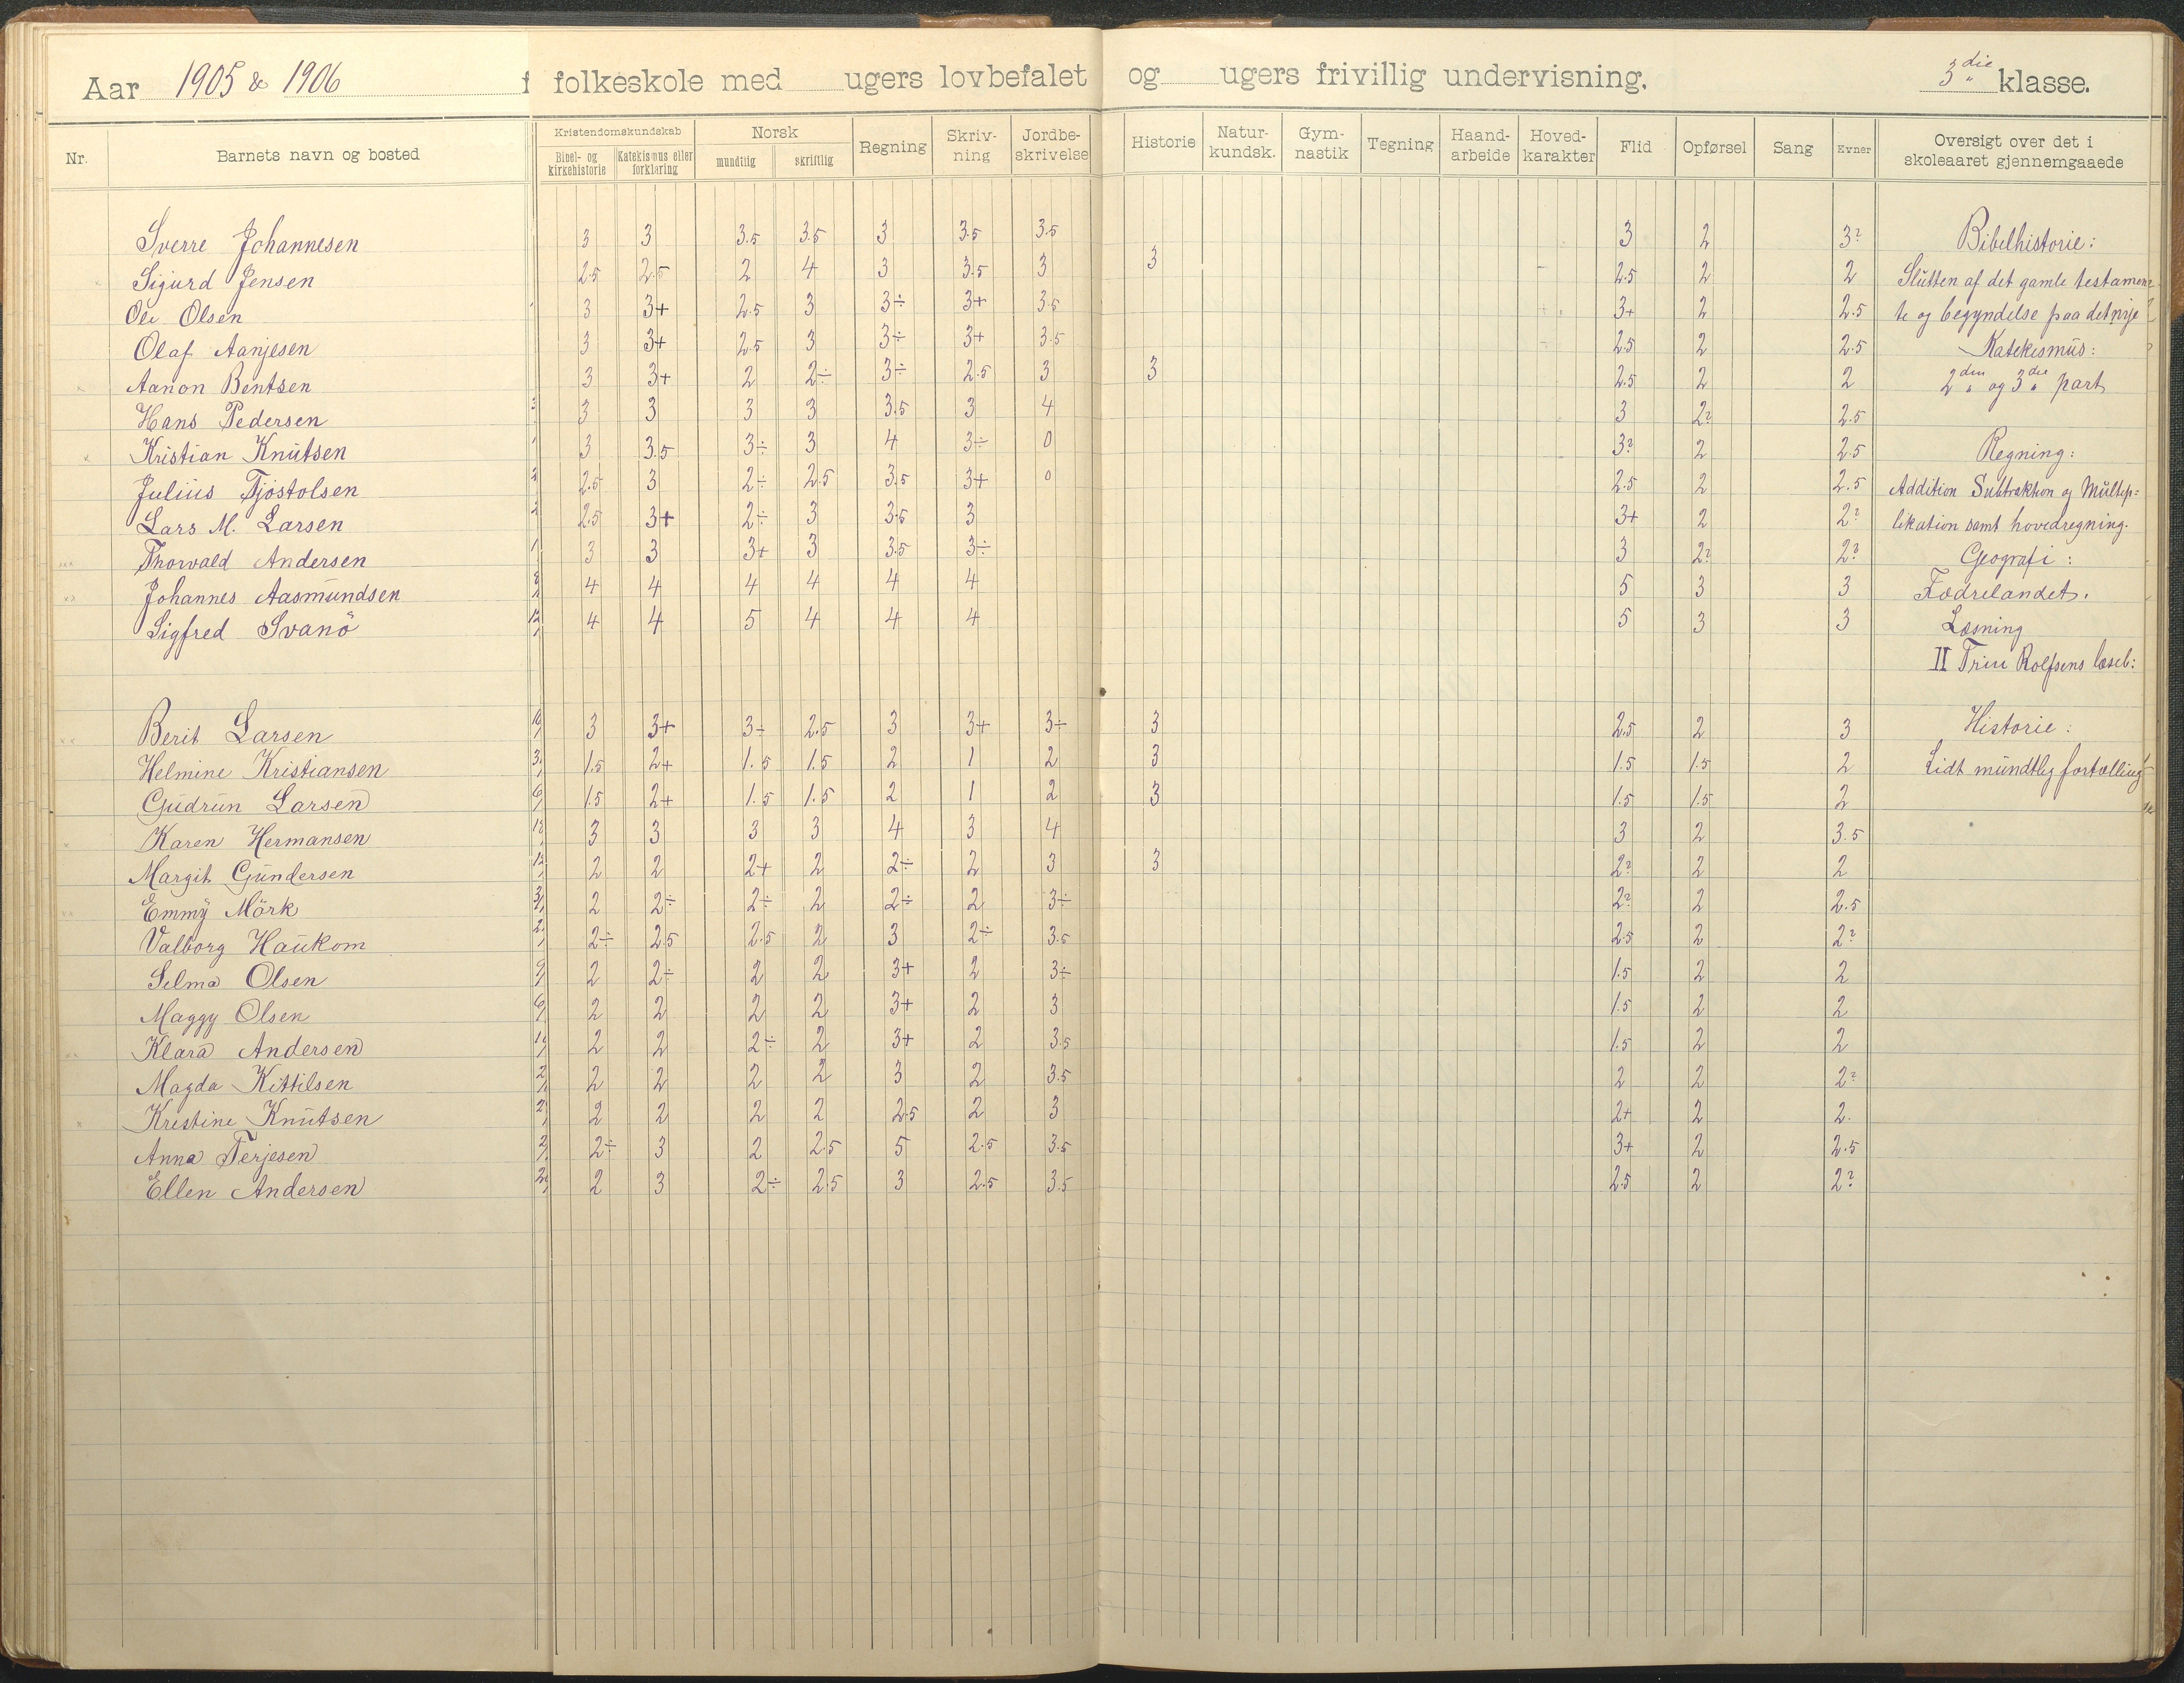 Aar 1905 & 1906 f folkeskole med ugers lovbefalet og ugers frivillig undervisning. 3die klasse.
Nr. Barnets navn og bosted Kristendomskundskab Bibel- og kirkehistorie Katekismus eller forklaring Norsk mundtlig skriftlig Regning Skriv-ning Jordbe-skrivelse Historie Natur-kundsk. Gym-nastik Tegning Haand-arbeide Hoved-karakter Flid Opførsel Sang Evner Oversigt over det i skoleaaret gjennemgaaede
Sverre Johannesen 3 3 3.5 3.5 3 3.5 3.5 3 2 3? Bibelhistorie:
Sigurd Jensen 2.5 2.5 2 4 3 3.5 3 3 2.5 2 2 Slutten af det gamle testamen-
Ole Olsen 3 3+ 2.5 3 3÷ 3+ 3.5 3+ 2 2.5 te og begyndelse paa det nye
Olaf Aanjesen 3 3+ 2.5 3 3÷ 3+ 3.5 2.5 2 2.5 Katekismus:
Aanon Bentsen 3 3+ 2 2÷ 3÷ 2.5 3 3 2.5 2 2 2den og 3die part
Hans Pedersen 3 3 3 3 3.5 3 4 3 2? 2.5
Kristian Knutsen 3 3.5 3÷ 3 4 3÷ 0 3? 2 2.5 Regning:
Julius Tjöstolsen 2.5 3 2÷ 2.5 3.5 3+ 0 2.5 2 2.5 Addition Subtraktion og Multip=
Lars M. Larsen 2.5 3+ 2÷ 3 3.5 3 3+ 2 2? likation samt hovedregning.
Thorvald Andersen 3 3 3+ 3 3.5 3÷ 3 2? 2? Geografi:
Johannes Aasmundsen 4 4 4 4 4 4 5 3 3 Fædrelandet.
Sigfred Svanö 4 4 5 4 4 4 5 3 3 Læsning
II Trin Rolfsens læseb:
Berit Larsen 3 3+ 3÷ 2.5 3 3+ 3÷ 3 2.5 2 3 Historie:
Helmine Kristiansen 1.5 2+ 1.5 1.5 2 1 2 3 1.5 1.5 2 Lidt mundtlig fortælling
Gudrun Larsen 1.5 2+ 1.5 1.5 2 1 2 3 1.5 1.5 2
Karen Hermansen 3 3 3 3 4 3 4 3 2 3.5
Margit Gundersen 2 2 2+ 2 2÷ 2 3 3 2? 2 2
Emmy Mörk 2 2÷ 2÷ 2 2÷ 2 3÷ 2? 2 2.5
Valborg Haukom 2÷ 2.5 2.5 2 3 2÷ 3.5 2.5 2 2?
Selma Olsen 2 2÷ 2 2 3+ 2 3÷ 1.5 2 2
Maggy Olsen 2 2 2 2 3+ 2 3 1.5 2 2
Klara Andersen 2 2 2÷ 2 3+ 2 3.5 1.5 2 2
Magda Kittilsen 2 2 2 2 3 2 3.5 2 2 2?
Kristine Knutsen 2 2 2 2 2.5 2 3 2+ 2 2.
Anna Terjesen 2÷ 3 2 2.5 5 2.5 3.5 3+ 2 2.5
Ellen Andersen 2 3 2÷ 2.5 3 2.5 3.5 2.5 2 2?